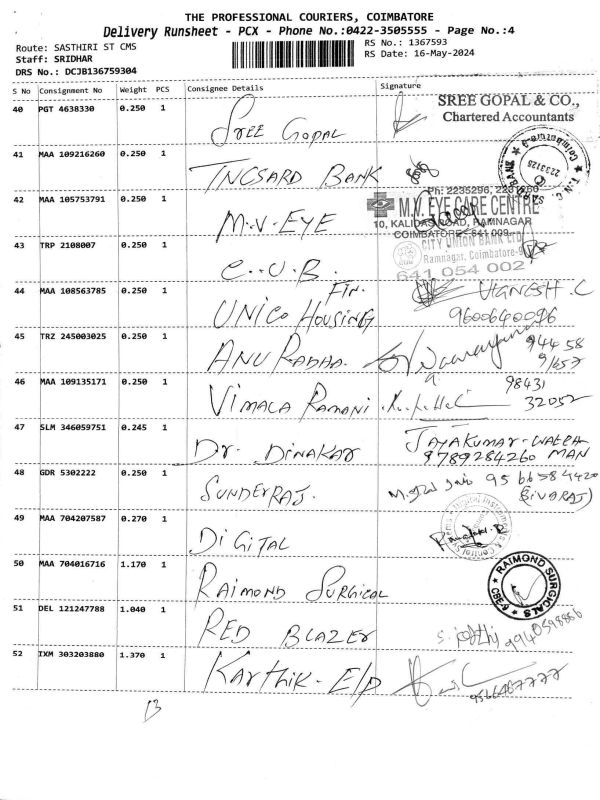 THE PROFESSIONAL COURIERS, COIMBATORE
Delivery Runsheet - PCX - Phone No.:0422-3505555 - Page No.:4
Route: SASTHIRI ST CMS
RS No.: 1367593
Staff: SRIDHAR
RS Date: 16-May-2024
DRS No.: DCJB136759304
S No Consignment No Weight PCS Consignee Details Signature
40 PGT 4638330 0.250 1 SREE GOPAL
SREE GOPAL & CO.,
Chartered Accountants
41 MAA 109216260 0.250 1 TNCSARD BANK
42 MAA 105753791 0.250 1 M.V-EYE
Ph: 2235296,
M.V. EYE CARE CENTRE
10, KALIDAS ROAD, RAMNAGAR
COIMBATORE - 641 009
43 TRP 2108007 0.250 1 C.U.B.
CITY UNION BANK LTD
Ramnagar, Coimbatore-9
641 054 002
44 MAA 108563785 0.250 1 UNICO HOUSING FIN.
VIGNESH.C
9600640096
45 TRZ 245003025 0.250 1 ANURADHA.
94458
46 MAA 109135171 0.250 1 VIMALA RAMANI
98431
32052
47 SLM 346059751 0.245 1 Dr. DINAKAR
JAYAKUMAR-WATCH
9789284260 MAN
48 GDR 5302222 0.250 1 SUNDERRAJ.
(SIVARAJ)
49 MAA 704207587 0.270 1 DIGITAL
50 MAA 704016716 1.170 1 RAIMOND SURGICAL
RAIMOND SURGICALS
CBE-9
51 DEL 121247788 1.040 1 RED BLAZER
52 IXM 303203880 1.370 1 KARTHIK-E/P
13